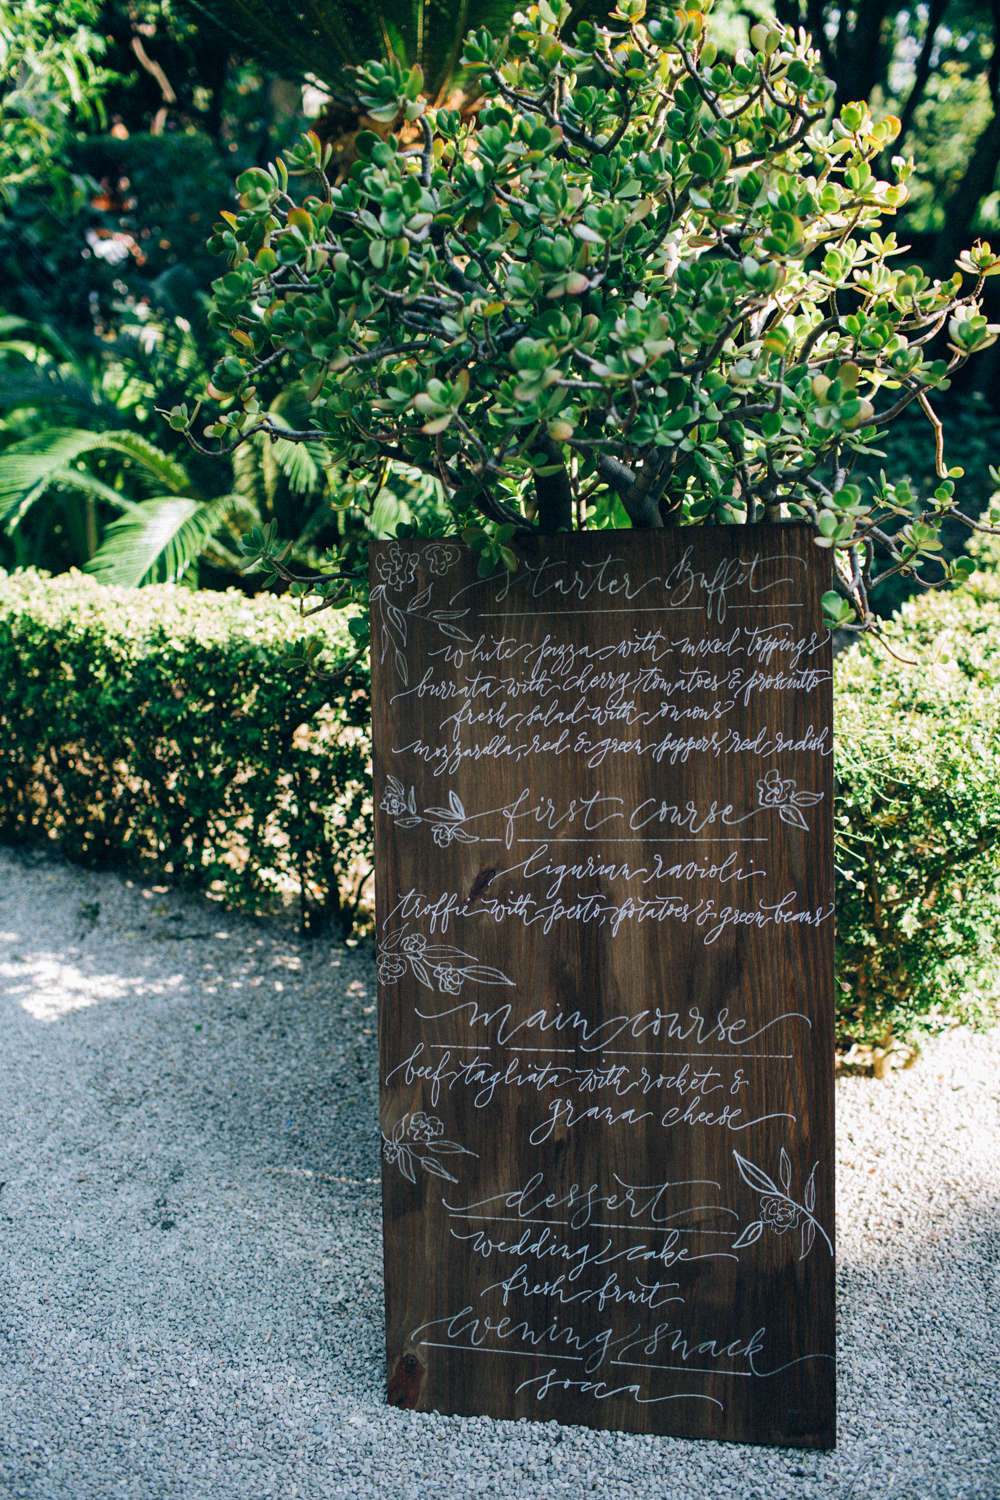 Starter Buffet
white pizza with mixed toppings
burrata with cherry tomatoes & prosciutto
fresh salad with onions
mozzarella, red & green peppers, red radish
first course
ligurian ravioli
troffie with pesto, potatoes & green beans
main course
beef tagliata with rocket &
grana cheese
dessert
wedding cake
fresh fruit
Evening snack
socca